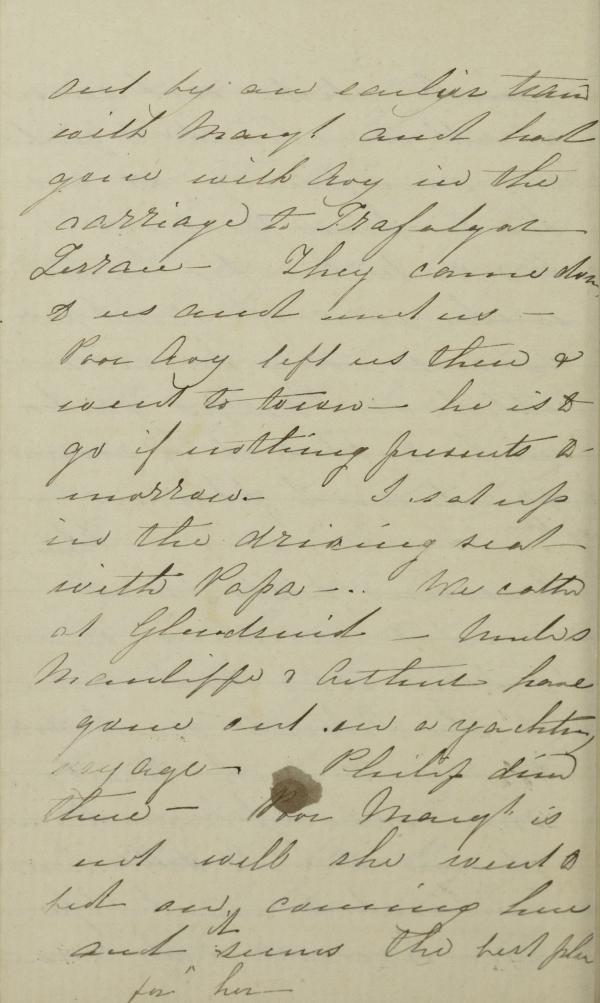 out by an earlier train
with Margt and had
gone with Avy in the
carriage to Trafalgar
Terrace — They came down
to us and met us —
Poor Avy left us then &
went to town — he is to
go if nothing presents to-
morrow — I sat up
in the driving seat
with Papa — .. We called
at Glendruid — Uncles
& Arthur have
gone out on a yachting
voyage — Philip dined
there — Poor Margt is
not well she went to
bed on coming here
and it seems the best plan
for her —